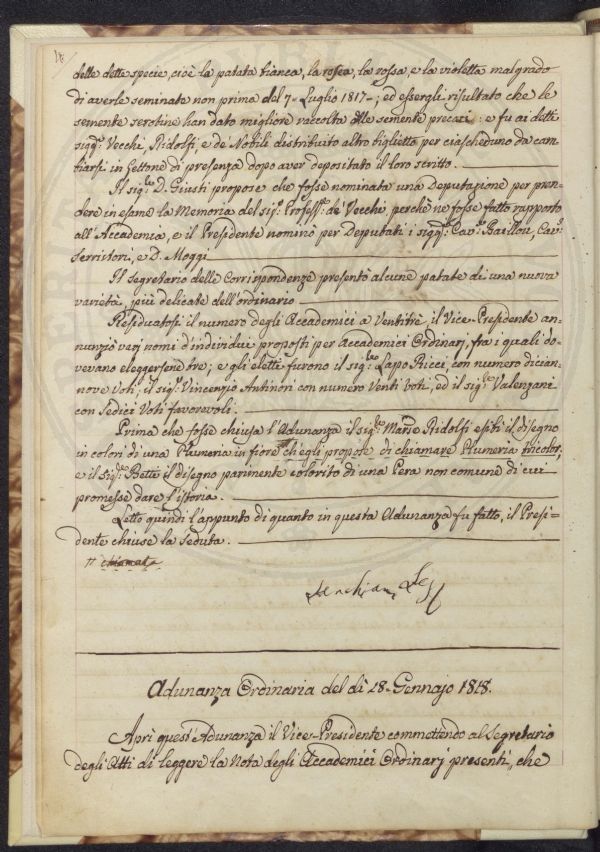 18
delle dette specie, cioè la patata bianca, la rosea, la rossa, e la violetta malgrado
di averle seminate non prima del 7. Luglio 1817., ed essergli risultato che le
semente serotine han dato migliore raccolta alle semente precari: e fu ai detti
sigg.ri Vecchi, Ridolfi, e de' Nobili distribuito altro biglietto per ciascheduno da cam-
biarsi in Gettone di presenza dopo aver depositato il loro scritto.
Il sig.re D. Giusti propose che fosse nominata una Deputazione per pren-
dere in esame la Memoria del sig.r Profess.r de' Vecchi, perchè ne fosse fatto rapporto
all'Accademia, e il Presidente nominò per Deputati i sigg.ri Cav.r Gaillou, Cav.r
Serristori, e D. Moggi
Il Segretario delle Corrispondenze presentò alcune patate di una nuova
varietà, più delicate dell'ordinario
Residuatosi il numero degli Accademici a Ventitrè, il Vice-Presidente an-
nunziò varj nomi d'individui proposti per Accademici Ordinarj, fra i quali do-
vevano eleggersene tre; e gli eletti furono il sig.re Lapo Ricci, con numero dician-
nove Voti; il sig.r Vincenzio Antinori con numero Venti Voti, ed il sig.re Valenzani
con Sedici Voti favorevoli.
Prima che fosse chiusa l'Adunanza il sig.re March.e Ridolfi esibì il disegno
in colori di una Plumeria in fiore ch'egli propose di chiamare Plumeria tricolor;
e il Sig.r Betti il disegno parimente colorito di una Pera non comune di cui
promesse dare l'istoria.
Letto quindi l'appunto di quanto in questa Adunanza fu fatto, il Presi-
dente chiuse la Seduta.
chiamat
Adunanza Ordinaria del dì 18. Gennajo 1818.
Aprì quest'Adunanza il Vice-Presidente commettendo al Segretario
degli Atti di leggere la Nota degli Accademici Ordinarj presenti, che